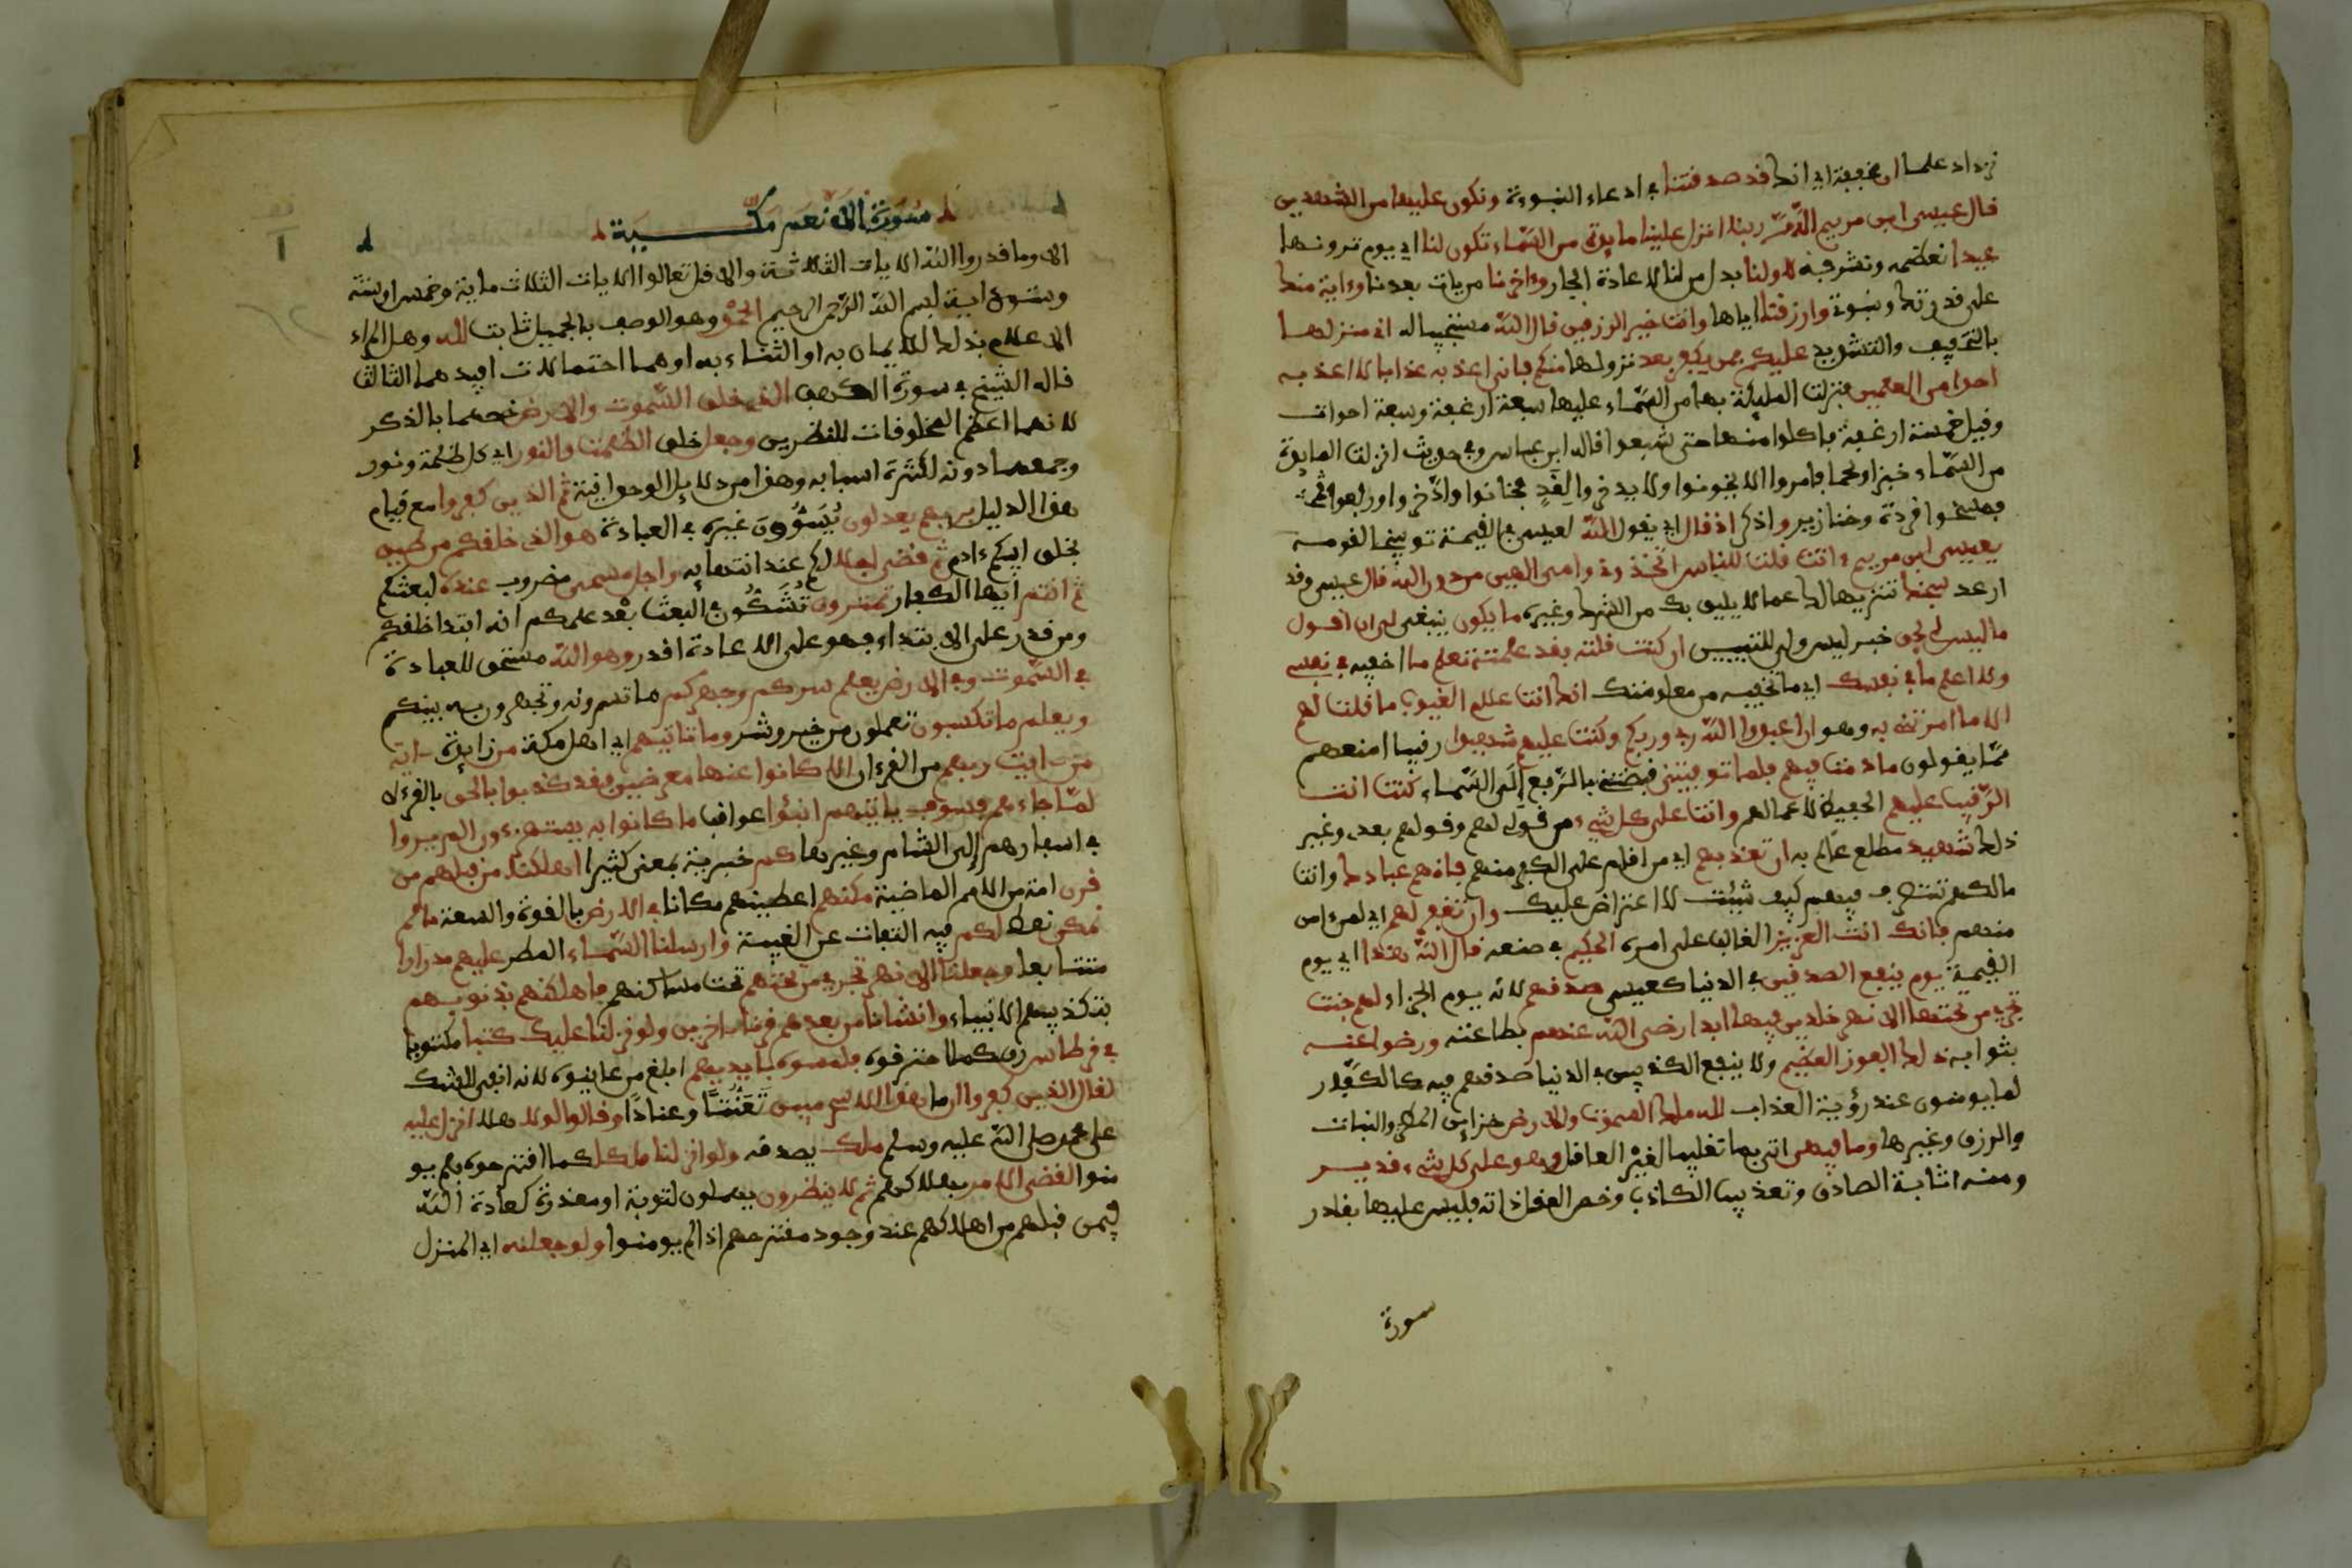 نزداد علما ان مخففة اي انك قد صدقتنا في ادعاء النبوة ونكون عليها من الشهدين
قال عيسى ابن مريم اللهم ربنا انزل علينا مايدة من السماء تكون لنا اي يوم نزولها
عيدا نعظمه ونشرفه لاولنا بدل من لنا لاعادة الجار وءاخرنا من يات بعدنا وءاية منك
على قدرتك ونبوة وارزقنا اياها وانت خير الرزقين قال الله مستجيبا له اني منزلها
بالتخفيف والتشديد عليكم فمن يكفر بعد نزولها منكم فاني اعذبه عذابا لا اعذبه
احدا من العلمين فنزلت المليكة بها من السماء عليها سبعة ارغفة وسبعة احوات
وقيل خمسة ارغفة فاكلوا منها حتى شبعوا قاله ابن عباس وفي حديث انزلت المايدة
من السماء خبزا ولحما فامروا الا يخونوا ولا يدخروا لغد فخانوا وادخروا ورفعوا
فمسخوا قردة وخنازير واذكر اذ قال اي يقول الله لعيسى في القيمة توبيخا لقومه
يعيسى ابن مريم ءانت قلت للناس اتخذوني وامي الهين من دون الله قال عيسى وقد
ارعد سبحنك تنزيها لك عما لا يليق بك من الشرك وغيره ما يكون ينبغي لي ان اقول
ما ليس لي بحق خبر ليس ولي للتبيين ان كنت قلته فقد علمته تعلم ما اخفيه في نفسي
ولا اعلم ما في نفسك اي ما تخفيه من معلوماتك انك انت علم الغيوب ما قلت لهم
الا ما امرتني به وهو ان اعبدوا الله ربي وربكم وكنت عليهم شهيدا رقيبا امنعهم
مما يقولون ما دمت فيهم فلما توفيتني قبضتني بالرفع الى السماء كنت انت
الرقيب عليهم الحفيظ لاعمالهم وانت على كل شيء من قولي لهم وقولهم بعدي وغير
ذلك شهيد مطلع عالم به ان تعذبهم اي من اقام على الكفر منهم فانهم عبادك وانت
مالكهم تتصرف فيهم كيف شيئت لا اعتراض عليك وان تغفر لهم اي لمن ءامن
منهم فانك انت العزيز الغالب على امره الحكيم في صنعه قال الله هذا اي يوم
القيمة يوم ينفع الصدقين في الدنيا كعيسى صدقهم لانه يوم الجزاء لهم جنت
تجري من تحتها الانهر خلدين فيها ابدا رضي الله عنهم بطاعته ورضوا عنه
بثوابه ذلك الفوز العظيم ولا ينفع الكذبين في الدنيا صدقهم فيه كالكفار
لما يومنون عند رؤية العذاب لله ملك السموت والارض خزاين المطر والنبات
والرزق وغيرها وما فيهن اتى بما تغليبا لغير العاقل وهو على كل شيء قدير
ومنه اثابة الصادق وتعذيب الكاذب وخص العقل ذاته فليس عليها بقادر
سورة
سورة الانعم مكية
الا وما قدروا الله الايات الثلاثة والا قل تعالوا الايات الثلاث ماية وخمس او ستة
وستون اية بسم الله الرحمن الرحيم الحمد وهو الوصف بالجميل ثابت لله وهل المراد
الاعلام بذلك للايمان به او الثناء به او هما احتمالات افيدهما الثالث
قاله الشيخ في سورة الكهف الذي خلق السموت والارض خصهما بالذكر
لانهما اعظم المخلوقات للنظرين وجعل خلق الظلمت والنور اي كل ظلمة ونور
وجمعها دونه لكثرة اسبابها وهذا من دلايل الوحدانية ثم الذين كفروا مع قيام
هذا الدليل بربهم يعدلون يسوون غيره في العبادة هو الذي خلقكم من طين
بخلق ابيكم ءادم ثم قضى اجلا لكم عند انتهايه واجل مسمى مضروب عنده لبعثكم
ثم انتم ايها الكفار تمترون تشكون في البعث بعد علمكم انه ابتدا خلقكم
ومن قدر على الابتداء فهو على الاعادة اقدر وهو الله مستحق للعبادة
في السموت وفي الارض يعلم سركم وجهركم ما تسرونه وتجهرون به بينكم
ويعلم ما تكسبون تعملون من خير وشر وما تاتيهم اي اهل مكة من زايدة ءاية
من ءايت ربهم من القرءان الا كانوا عنها معرضين فقد كذبوا بالحق بالقرءان
لما جاءهم فسوف ياتيهم انبؤا عواقب ما كانوا به يستهزءون الم يروا
في اسفارهم الى الشام وغيرها كم خبرية بمعنى كثيرا اهلكنا من قبلهم من
قرن امة من الامم الماضية مكنهم اعطينهم مكانا في الارض بالقوة والسعة ما لم
نمكن نعط لكم فيه التفات عن الغيبة وارسلنا السماء المطر عليهم مدرارا
متتابعا وجعلنا الانهر تجري من تحتهم تحت مساكنهم فاهلكنهم بذنوبهم
بتكذيبهم الانبياء وانشانا من بعدهم قرنا ءاخرين ولو نزلنا عليك كتبا مكتوبا
في قرطاس رق كما اقترحوه فلمسوه بايديهم ابلغ من عاينوه لانه انفى للشك
لقال الذين كفروا ان ما هذا الا سحر مبين تعنتا وعنادا وقالوا لولا هلا انزل عليه
على محمد صلى الله عليه وسلم ملك يصدقه ولو انزلنا ملكا كما اقترحوه فلم يو
منوا لقضي الامر بهلاكهم ثم لا ينظرون يمهلون لتوبة او معذرة كعادة الله
فيمن قبلهم من اهلاكهم عند وجود مقترحهم اذا لم يومنوا ولو جعلنه اي المنزل